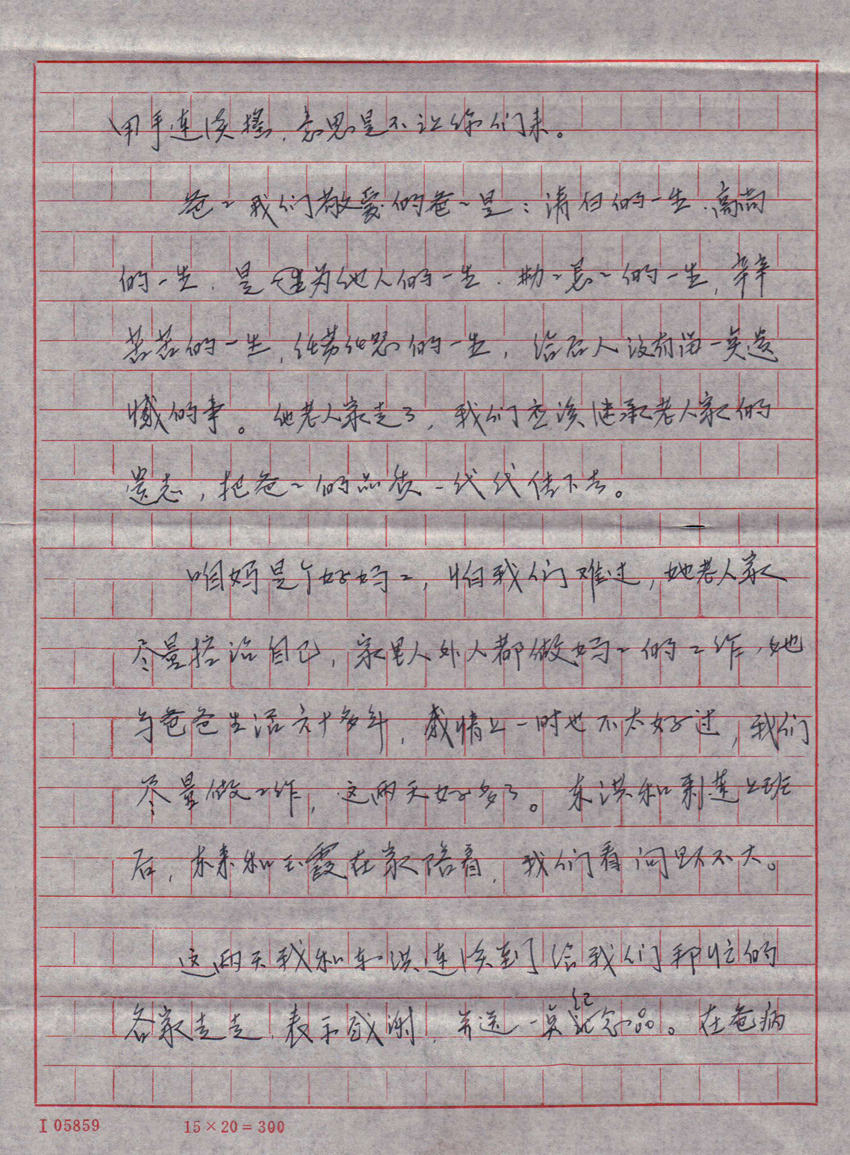 用手连续摇,意思是不让你们来。
爸〻我们敬爱的爸〻是:清白的一生.高尚
的一生.是 为他人的一生.勤〻恳〻的一生,辛辛
苦苦的一生,任劳任怨的一生,给后人没有留一点遗
憾的事。他老人家走了,我们应该继承老人家的
遗志,把爸〻的品质一代代传下去。
咱妈是个好妈〻,怕我们难过,她老人家
尽量控治自己,家里人外人都做妈〻的工作,她
与爸爸生活六十多年,感情上一时也不太好过,我们
尽量做工作,这两天好多了。东洪和 莲上班
后,东来和玉霞在家陪着,我们看问题不大。
这两天我和东洪连续到给我们帮忙的
各家走走,表示感谢,并送一点纪念品。在爸病
I 05859
15×20=300